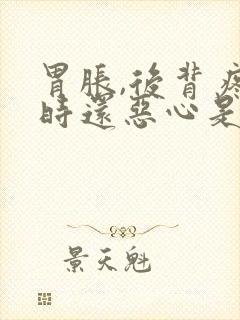 胃脹,後背疼
時還惡心是
景天魁